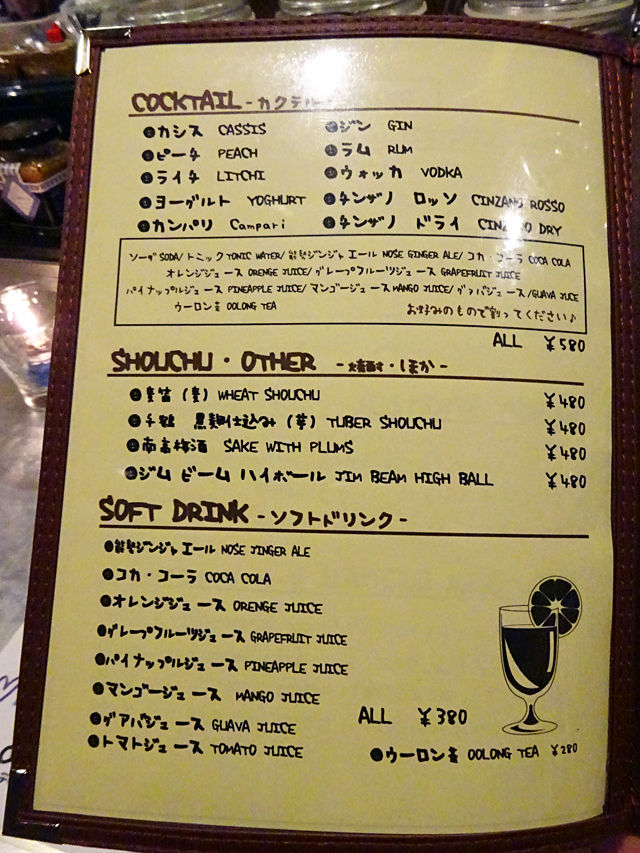 COCKTAIL - カクテル
●カシス CASSIS ●ジン GIN
●ピーチ PEACH ●ラム RUM
●ライチ LITCHI ●ウォッカ VODKA
●ヨーグルト YOGHURT ●チンザノ ロッソ CINZANO ROSSO
●カンパリ Campari ●チンザノ ドライ CINZANO DRY
ソーダ SODA/トニック TONIC WATER/能勢ジンジャエール NOSE GINGER ALE/コカ・コーラ COCA COLA
オレンジジュース ORENGE JUICE/グレープフルーツジュース GRAPEFRUIT JUICE
パイナップルジュース PINEAPPLE JUICE/マンゴージュース MANGO JUICE/グァバジュース/GUAVA JUCE
ウーロン茶 OOLONG TEA お好みのもので割ってください♪
ALL ¥580
SHOUCHU・OTHER -焼酎・ほか-
●麦笛(麦) WHEAT SHOUCHU ¥480
●千鶴 黒麹仕込み(芋) TUBER SHOUCHU ¥480
●南高梅酒 SAKE WITH PLUMS ¥480
●ジム ビーム ハイボール JIM BEAM HIGH BALL ¥480
SOFT DRINK -ソフトドリンク-
●能勢ジンジャエール NOSE JINGER ALE
●コカ・コーラ COCA COLA
●オレンジジュース ORENGE JUICE
●グレープフルーツジュース GRAPEFRUIT JUICE
●パイナップルジュース PINEAPPLE JUICE
●マンゴージュース MANGO JUICE
●グアバジュース GUAVA JUICE
ALL ¥380
●トマトジュース TOMATO JUICE
●ウーロン茶 OOLONG TEA ¥280